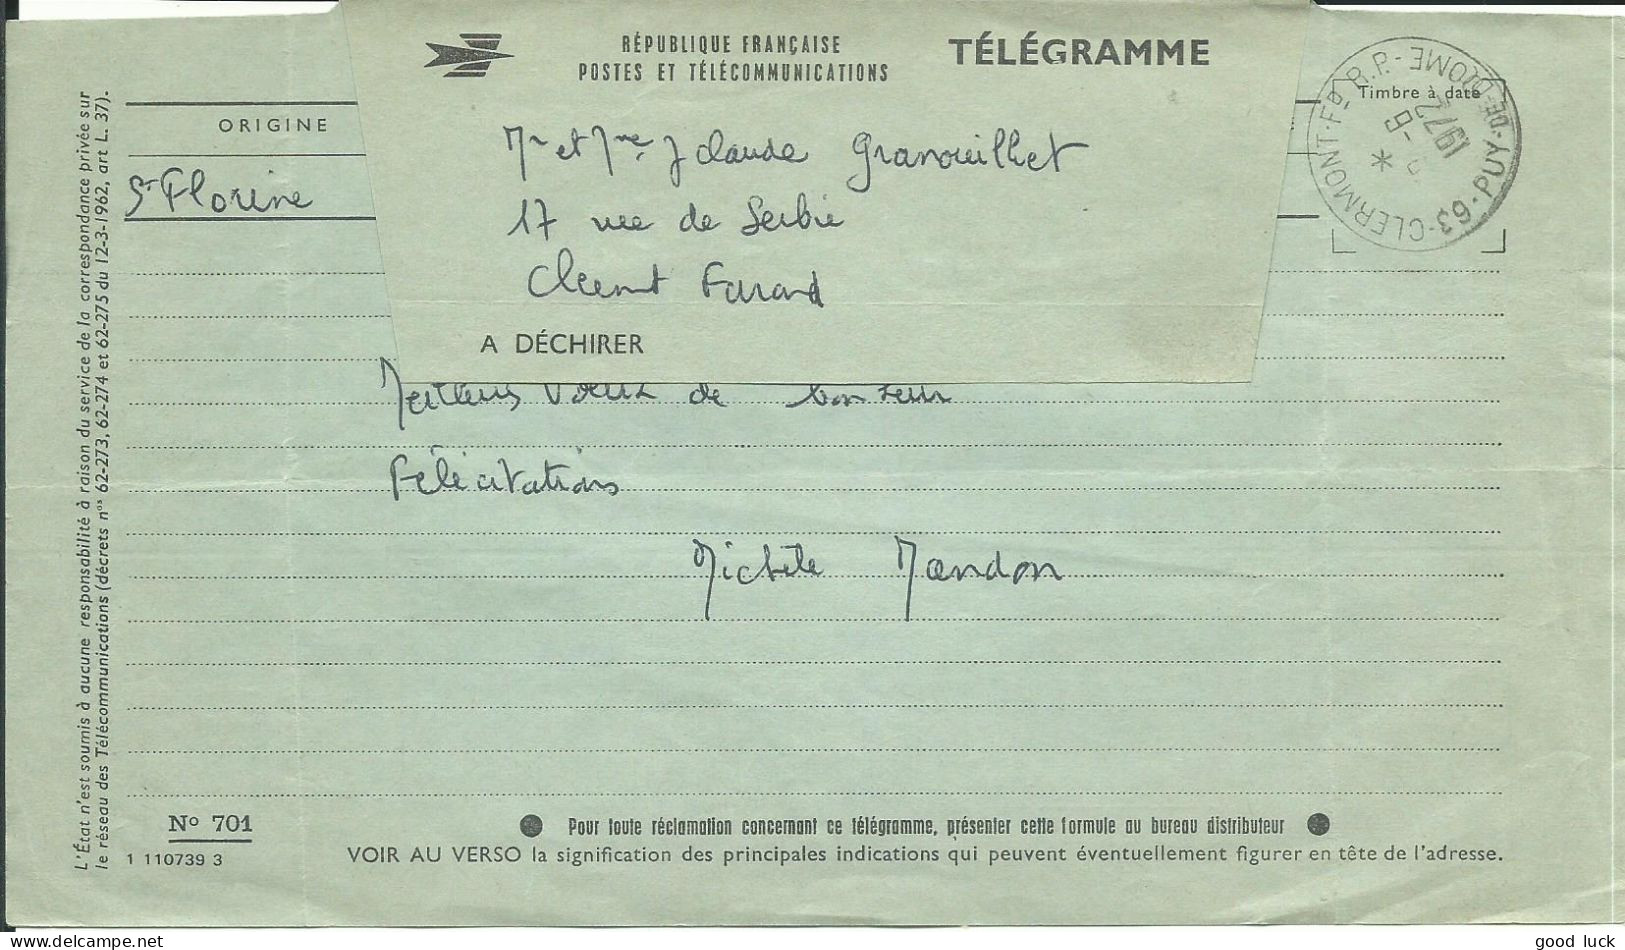 RÉPUBLIQUE FRANÇAISE
POSTES ET TÉLÉCOMMUNICATIONS
TÉLÉGRAMME
Timbre à date
63-CLERMONT-FD R.P.-PUY-DE-DOME
1972
ORIGINE
St Florine
Mr et Mme J Claude Granouilhet
17 rue de Serbie
Clermont Ferrand
A DÉCHIRER
Meilleurs voeux de bonheur
Félicitations
Michèle Mandon
L'État n'est soumis à aucune responsabilité à raison du service de la correspondance privée sur
le réseau des Télécommunications (décrets nos 62-273, 62-274 et 62-275 du 12-3-1962, art L. 37).
No 701
1 110739 3
Pour toute réclamation concernant ce télégramme, présenter cette formule au bureau distributeur
VOIR AU VERSO la signification des principales indications qui peuvent éventuellement figurer en tête de l'adresse.
delcampe.net
good luck